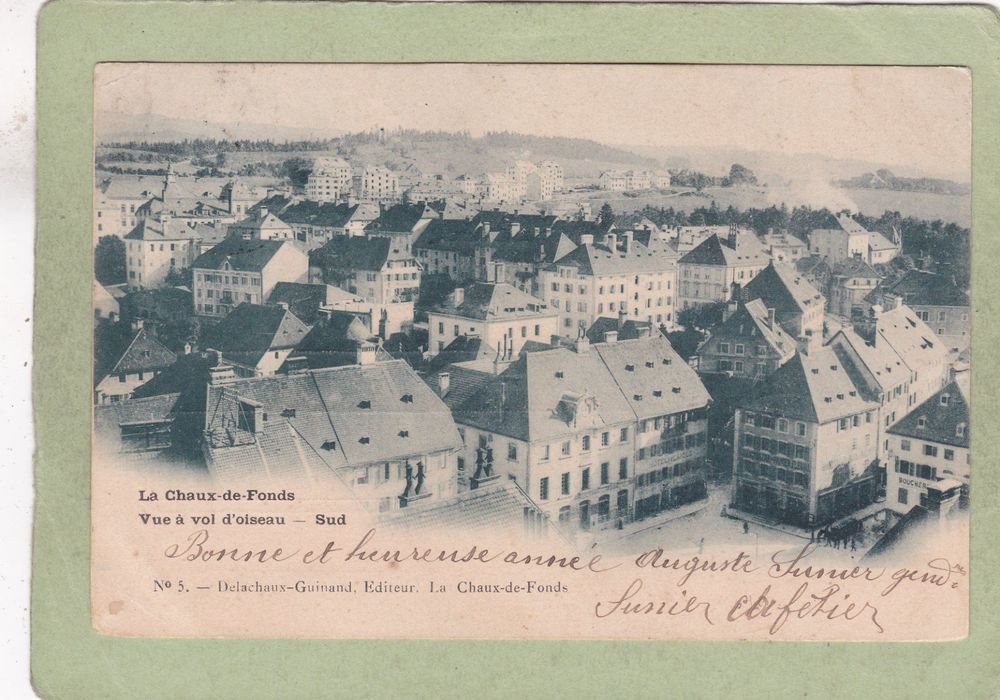 BOUCHERI
La Chaux-de-Fonds
Vue à vol d'oiseau — Sud
Bonne et heureuse année Auguste Sunier gendme
No 5. — Delachaux-Guinand, Editeur. La Chaux-de-Fonds
Sunier cafetier